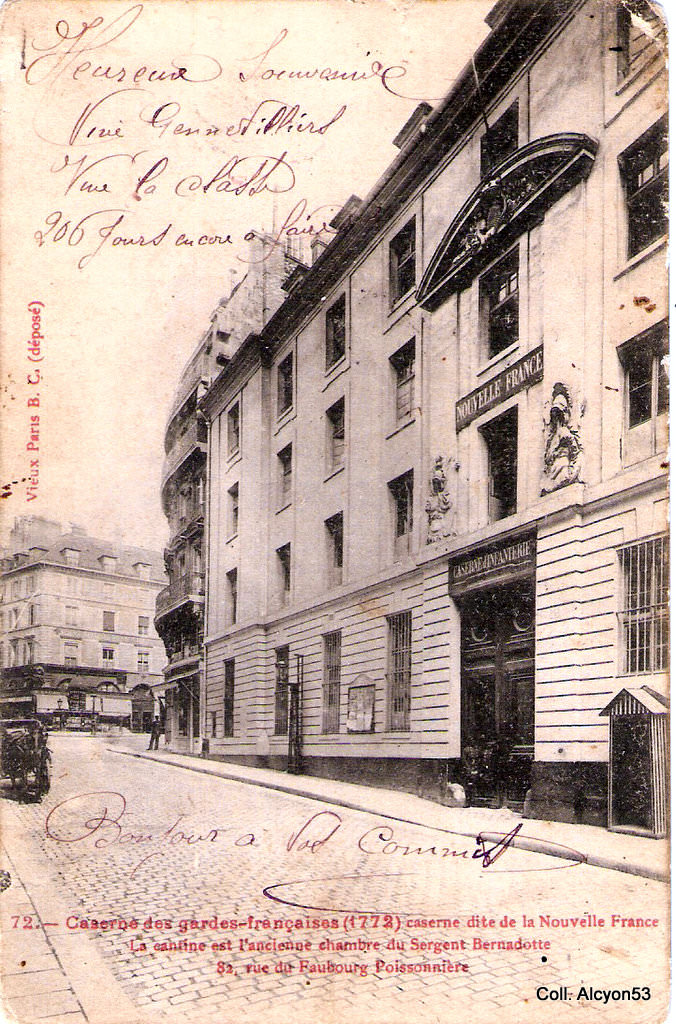 Heureux Souvenir
Vive Gennevilliers
Vive la classe
206 Jours encore a faire
Vieux Paris B. C. (déposé)
NOUVELLE FRANCE
CASERNE D'INFANTERIE
Bonjour à vos Commis
72.- Caserne des gardes-françaises (1772) caserne dite de la Nouvelle France
La cantine est l'ancienne chambre du Sergent Bernadotte
82, rue du Faubourg Poissonnière
Coll. Alcyon53